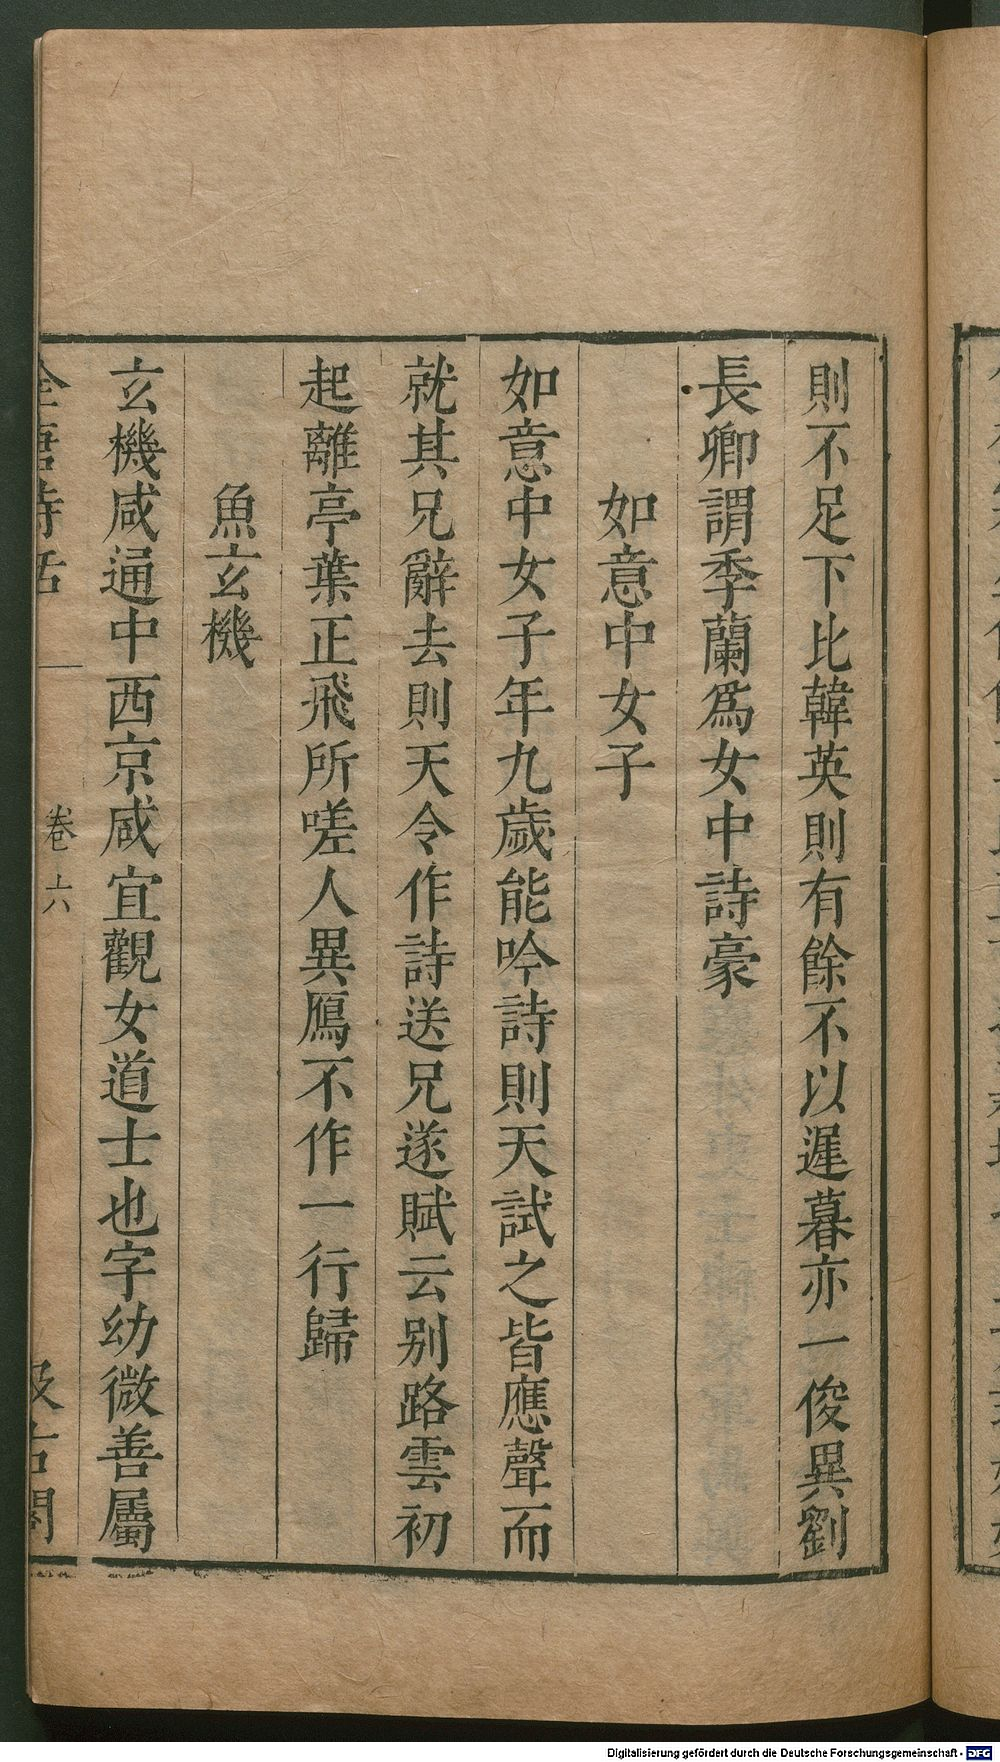 則不足下比韓英則有餘不以遲暮亦一俊異劉
長卿謂季蘭爲女中詩豪
如意中女子
如意中女子年九歲能吟詩則天試之皆應聲而
就其兄辭去則天令作詩送兄遂賦云别路雲初
起離亭葉正飛所嗟人異鴈不作一行歸
魚玄機
玄機咸通中西京咸宜觀女道士也字幼微善屬
全唐詩話
卷六
汲古閣
Digitalisierung gefördert durch die Deutsche Forschungsgemeinschaft - DFG